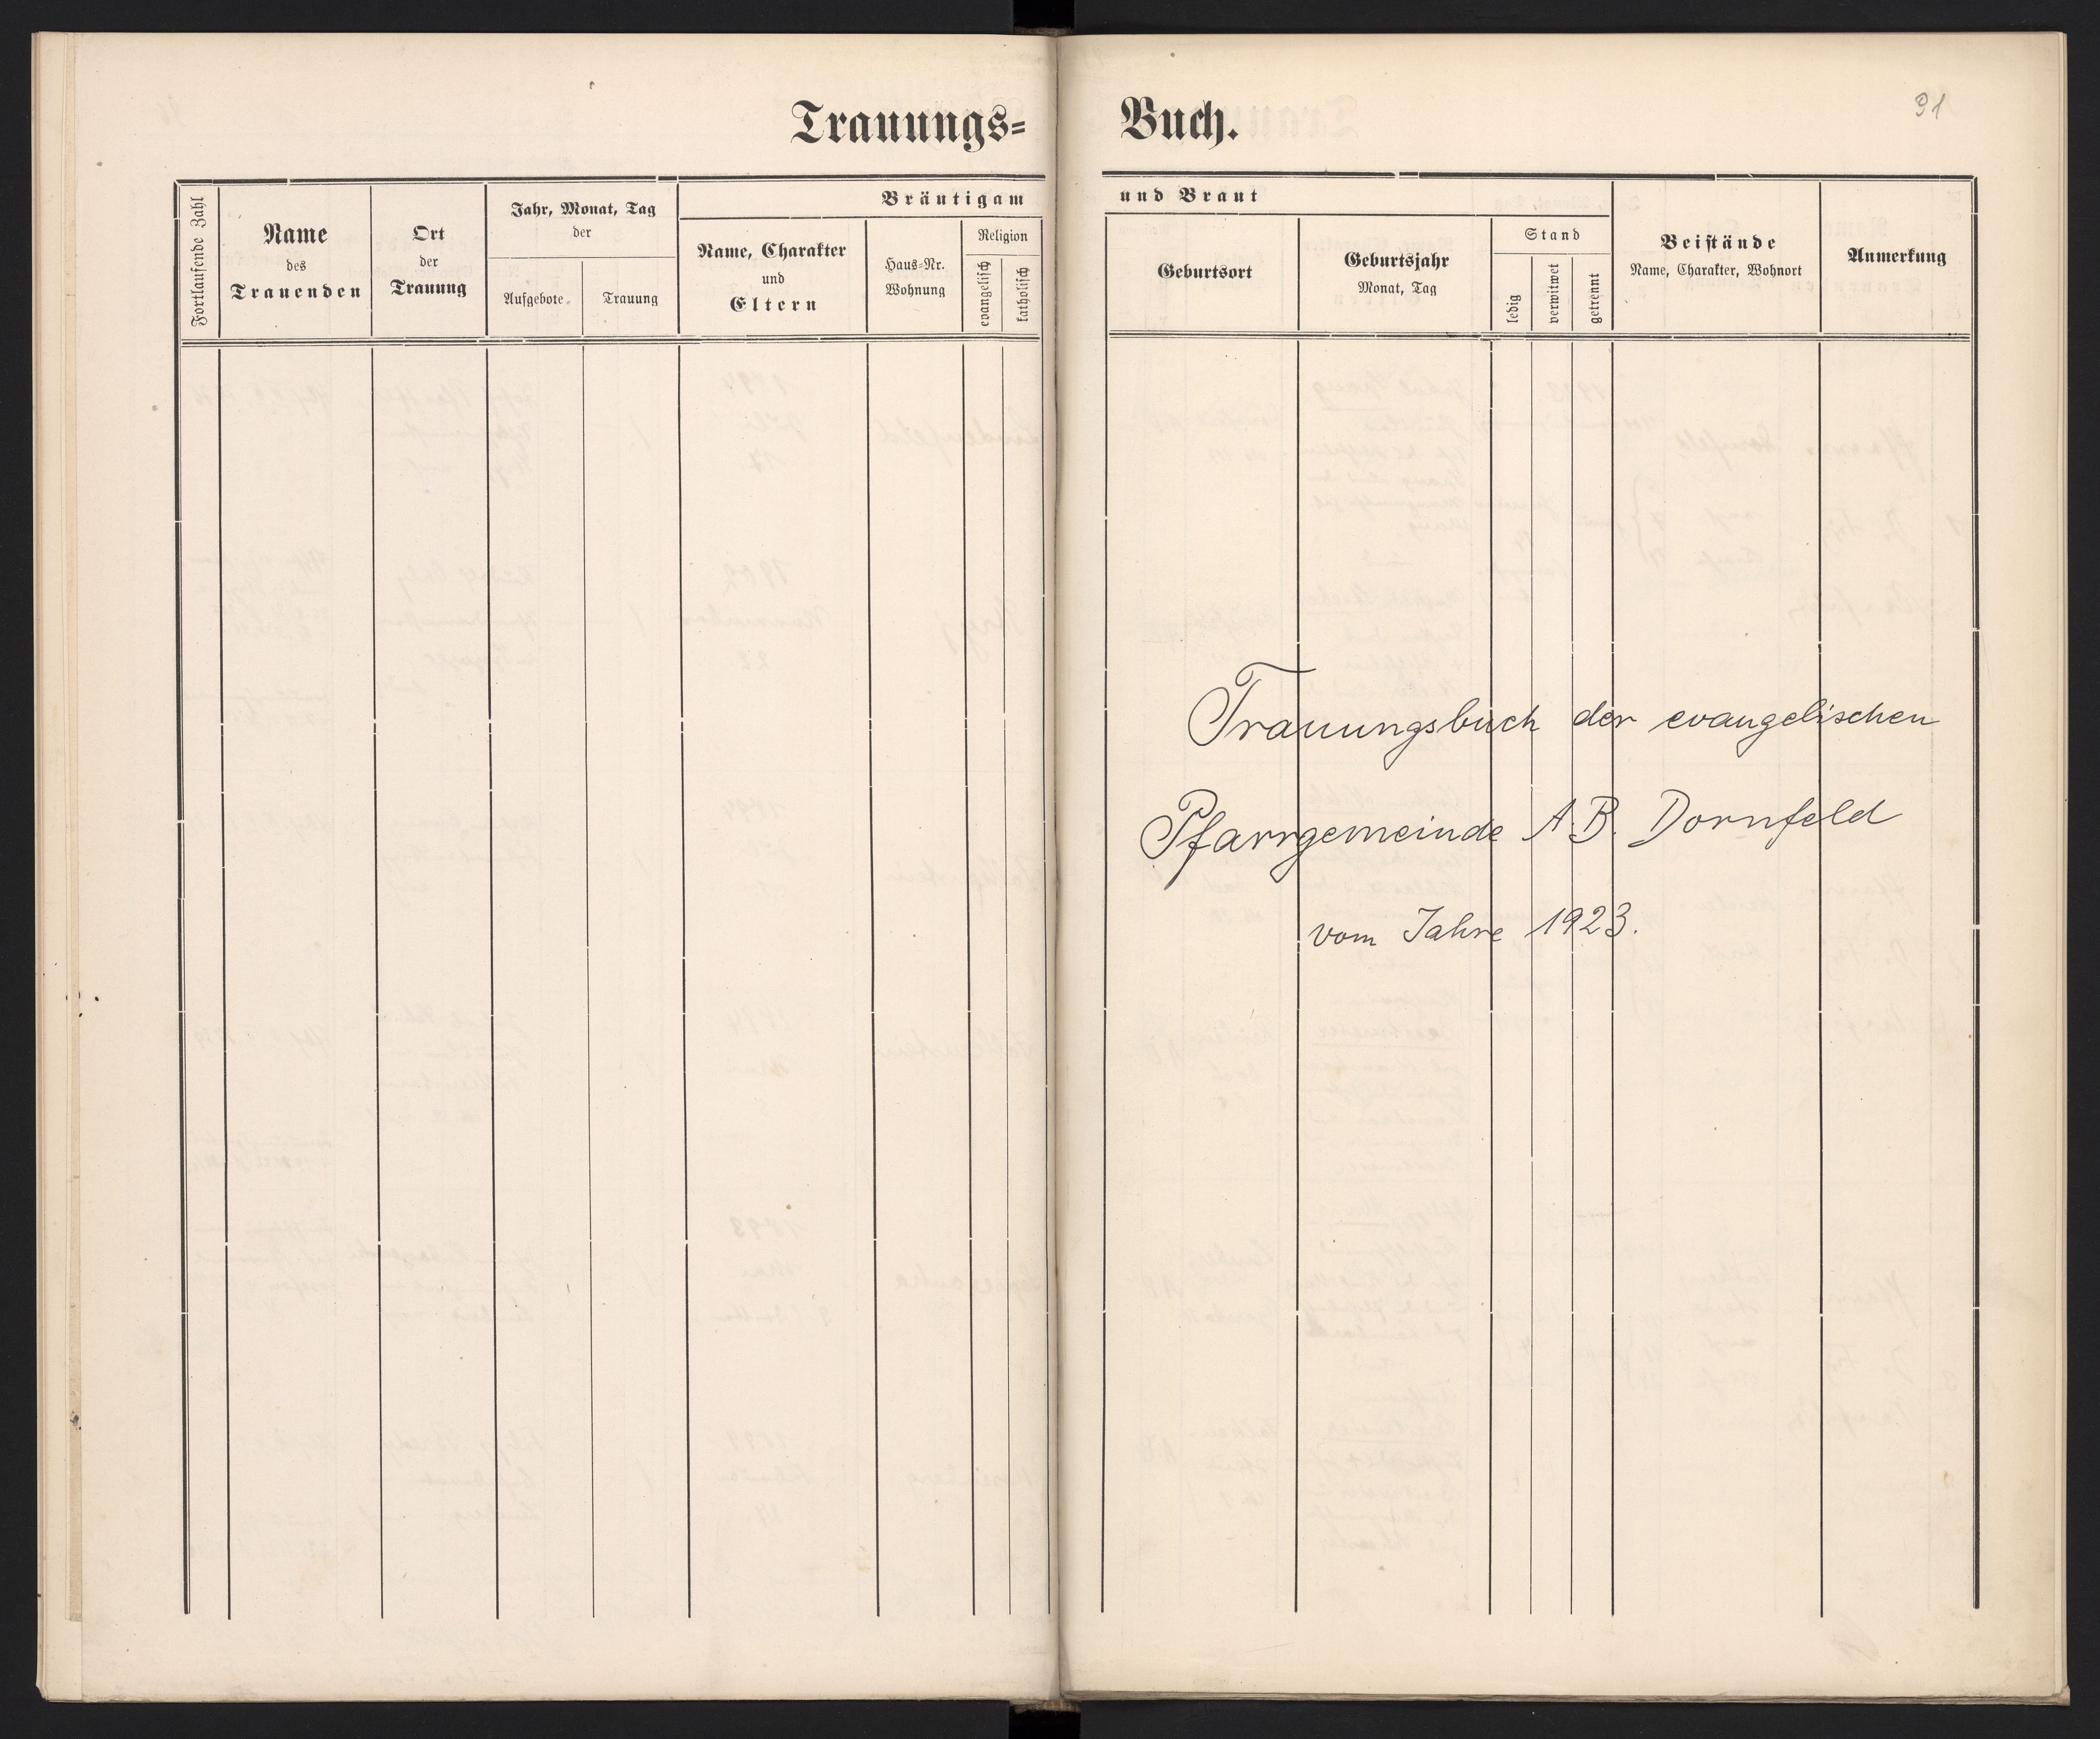 Trauungs=
Buch.
91
Fortlaufende Zahl
Name
des
Trauenden
Ort
der
Trauung
Jahr, Monat, Tag
der
Aufgebote
Trauung
Bräutigam
Name, Charakter
und
Eltern
Haus=Nr.
Wohnung
Religion
evangelisch
katholisch
und Braut
Geburtsort
Geburtsjahr
Monat, Tag
Stand
ledig
verwitwet
getrennt
Beistände
Name, Charakter, Wohnort
Anmerkung
Trauungsbuch der evangelischen
Pfarrgemeinde A.B. Dornfeld
vom Jahre 1923.